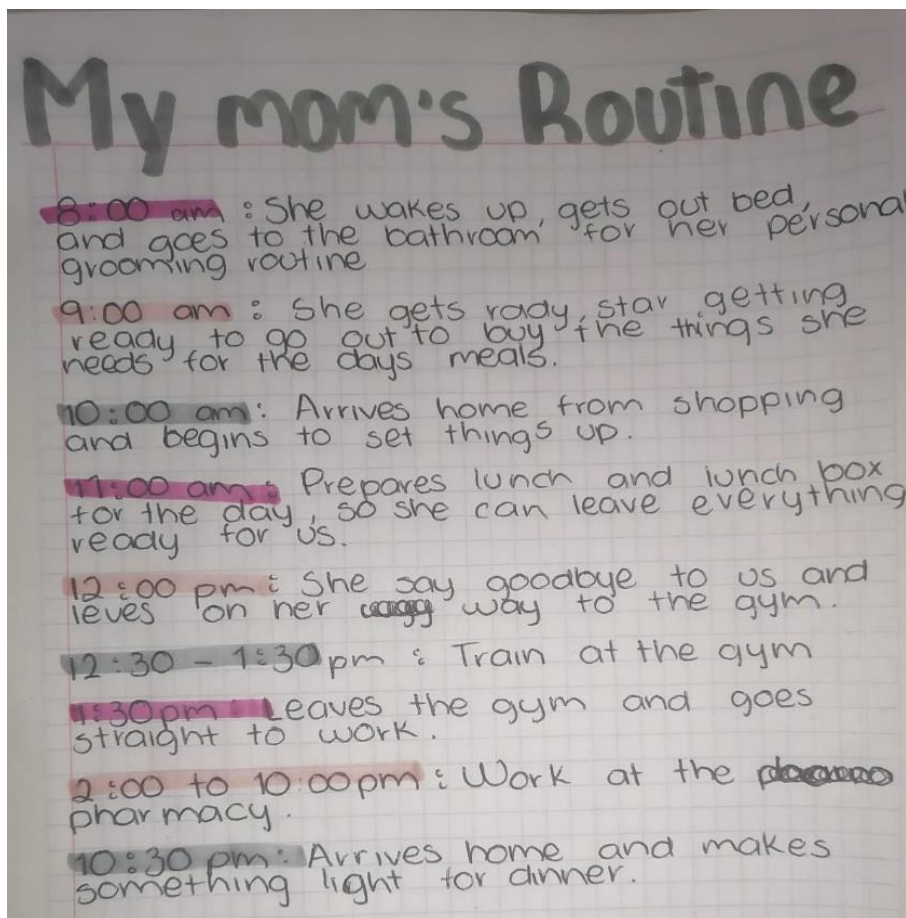 My mom's Routine
8:00 am : She wakes up, gets out bed,
and goes to the bathroom for her personal
grooming routine
9:00 am : She gets rady, star getting
ready to go out to buy the things she
needs for the days meals.
10:00 am : Arrives home from shopping
and begins to set things up.
11:00 am : Prepares lunch and lunch box
for the day, so she can leave everything
ready for us.
12:00 pm : She say goodbye to us and
leves on her way to the gym.
12:30 - 1:30 pm : Train at the gym
1:30 pm : Leaves the gym and goes
straight to work.
2:00 to 10:00 pm : Work at the
pharmacy.
10:30 pm : Arrives home and makes
something light for dinner.